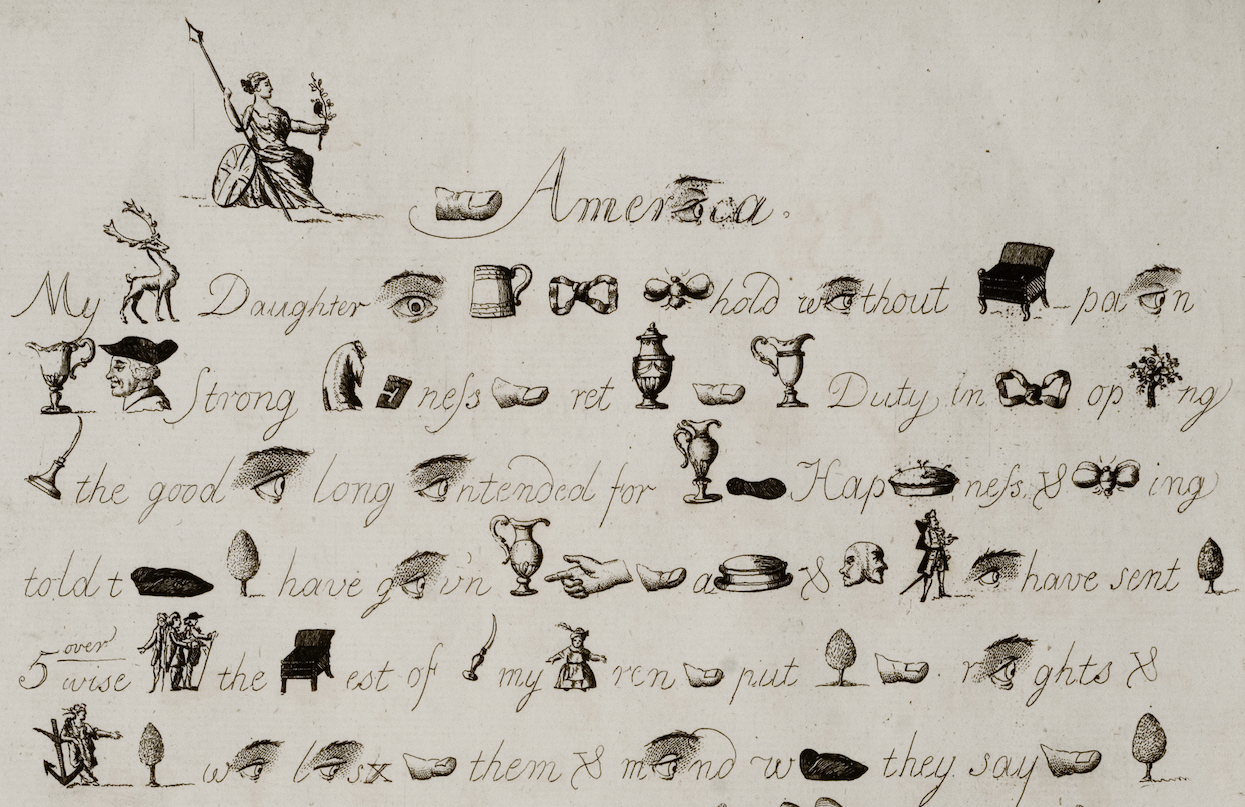 Amer ca.
My Daughter hold w thout pa n
Strong neſs ret Duty in op ng
the good long ntended for Hap neſs, & ing
told t have g v'n a & have sent
5 over wise the est of my ren put r ghts &
w l sx them & m nd w they say